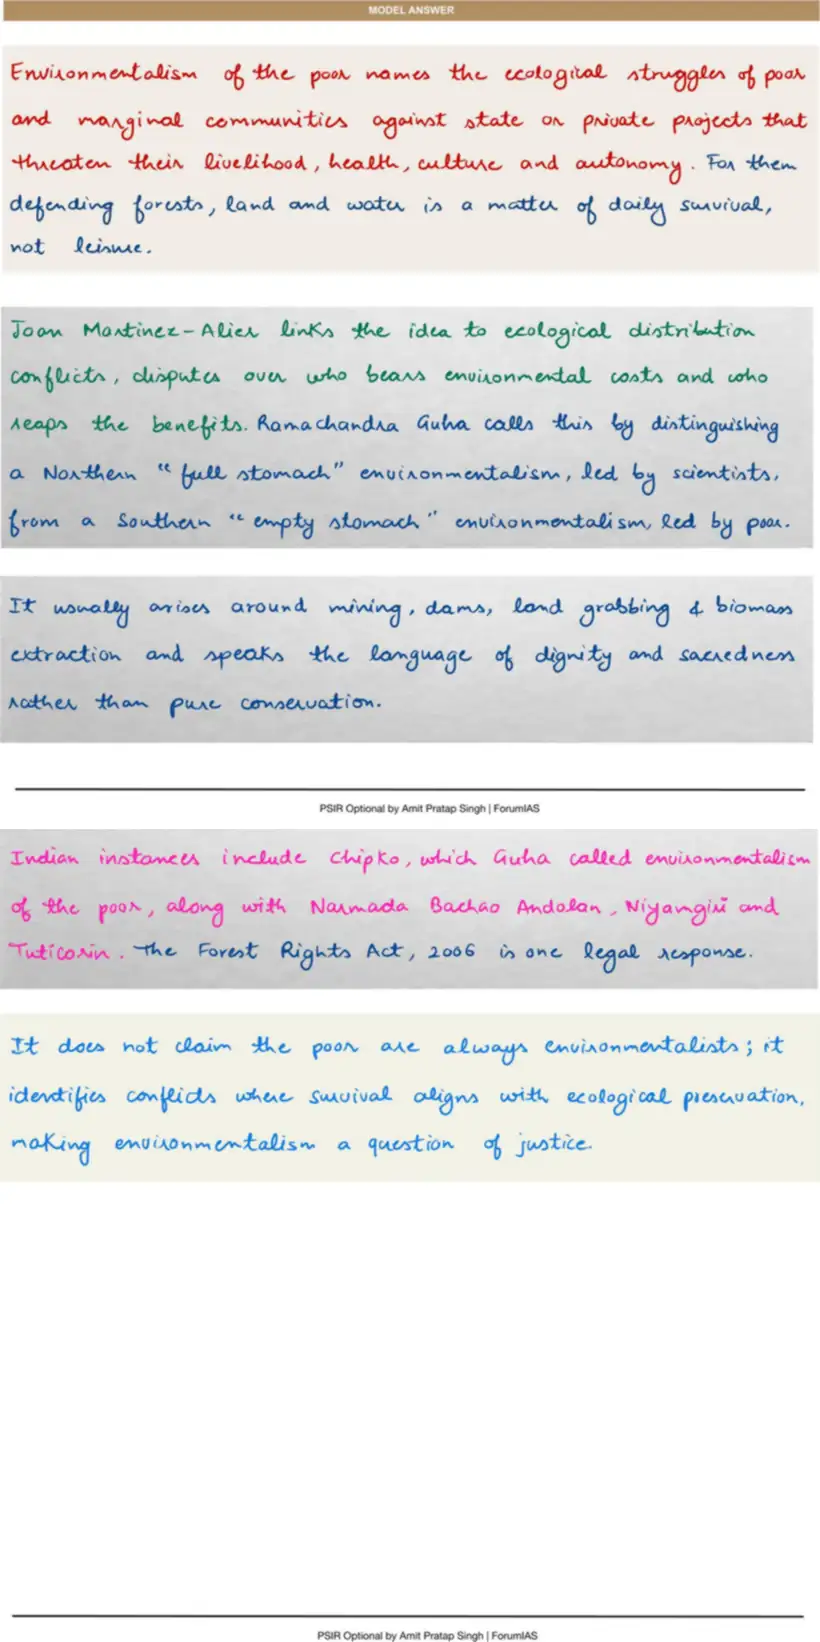 MODEL ANSWER
Environmentalism of the poor names the ecological struggles of poor
and marginal communities against state or private projects that
threaten their livelihood, health, culture and autonomy. For them
defending forests, land and water is a matter of daily survival,
not leisure.
Joan Martinez-Alier links the idea to ecological distribution
conflicts, disputes over who bears environmental costs and who
reaps the benefits. Ramachandra Guha calls this by distinguishing
a Northern "full stomach" environmentalism, led by scientists,
from a Southern "empty stomach" environmentalism, led by poor.
It usually arises around mining, dams, land grabbing & biomass
extraction and speaks the language of dignity and sacredness
rather than pure conservation.
PSIR Optional by Amit Pratap Singh | ForumIAS
Indian instances include Chipko, which Guha called environmentalism
of the poor, along with Narmada Bachao Andolan, Niyamgiri and
Tuticorin. The Forest Rights Act, 2006 is one legal response.
It does not claim the poor are always environmentalists; it
identifies conflicts where survival aligns with ecological preservation,
making environmentalism a question of justice.
PSIR Optional by Amit Pratap Singh | ForumIAS